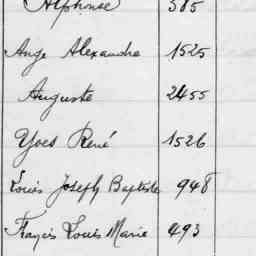 Alphonse 385
Ange Alexandre 1525
Auguste 2455
Yves René 1526
Louis Joseph Baptiste 948
Francis Louis Marie 493